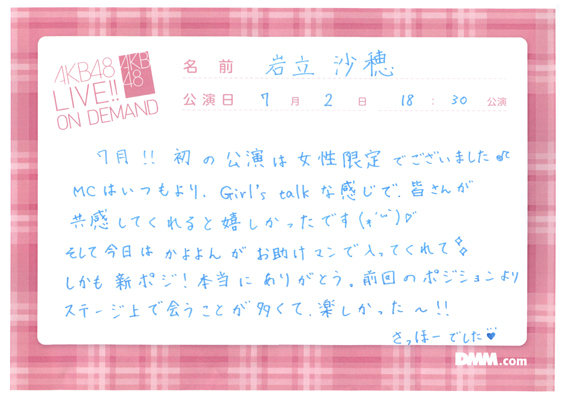 AKB48
LIVE!!
ON DEMAND
AKB
48
名前 岩立 沙穂
公演日 7月2日 18:30 公演
7月!! 初の公演は女性限定でございました♪
MCはいつもより、Girl's talkな感じで、皆さんが
共感してくれると嬉しかったです
そして今日は かよよんが お助けマンで入ってくれて
しかも新ポジ!本当にありがとう。前回のポジションより
ステージ上で会うことが多くて、楽しかった〜!!
さっほーでした♥
DMM.com